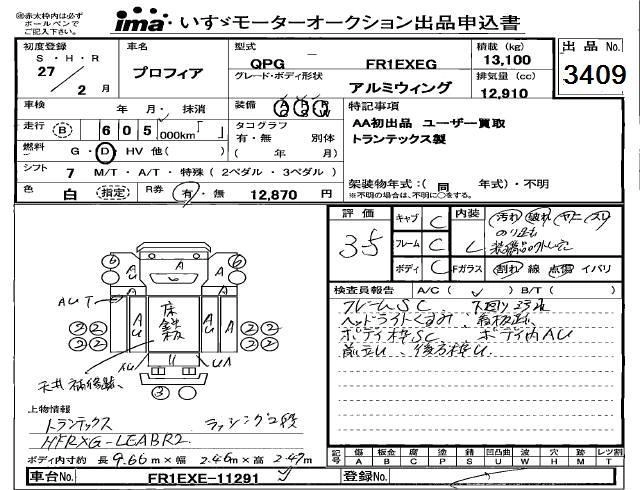 ※赤太枠内は必ず
ボールペンで
ご記入下さい。
ima いすゞモーターオークション出品申込書
初度登録
S・H・R
27／2 月
車名
プロフィア
型式
QPG FR1EXEG
グレード・ボディ形状
アルミウィング
積載 (kg)
13,100
排気量 (cc)
12,910
出品 No.
3409
車検 年 月・抹消
走行 B 605,000km「 」
燃料 G・D・HV 他( )
シフト 7 M/T・A/T・特殊 (2ペダル・3ペダル)
色 白 指定 R券 有・無 12,870 円
装備 A/G P/S P/W
タコグラフ
有・無 別体
( 年 月)
特記事項
AA初出品 ユーザー買取
トランテックス製
架装物年式:( 同 年式)・不明
※不明の場合は、不明に○をする。
評価 35
キャブ C
フレーム C
ボディ C
内装 汚れ 破れ ヤニ・スリ
Fガラス 割れ 線 点傷 イバリ
検査員報告 A/C ( ✓ ) B/T ( )
フレームSC
ヘッドライトくるみ
ボディ枠SC ボディ内AU
6 A 6
AU A AU
AUT
2 2 AU A A AU 2 2
2 2 2 2
床鉄板
AU U UA
3
天井補修跡、
上物情報
トランテックス ラッシング2段
HFRXG-LEABR2
ボディ内寸約 長 9.66 m×幅 2.46 m×高 2.47 m
記号 傷 A 板金 B 腐 C 塗 P 錆 S 凹凸曲 U 波 W 穴 H 跡 M レツ割 T
車台No. FR1EXE-11291
登録No.